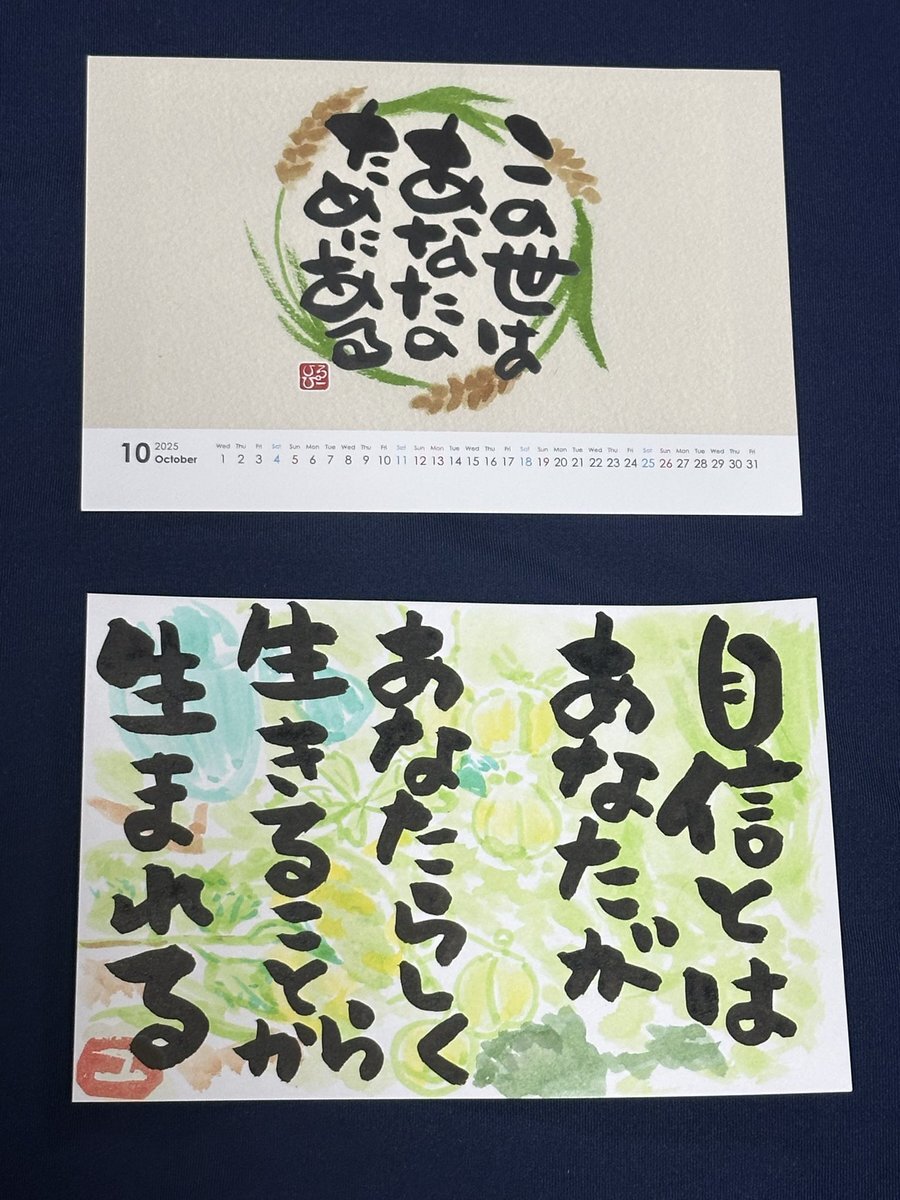 この世は
あなたの
ためにある
10 2025 October
Wed Thu Fri Sat Sun Mon Tue Wed Thu Fri Sat Sun Mon Tue Wed Thu Fri Sat Sun Mon Tue Wed Thu Fri Sat Sun Mon Tue Wed Thu Fri
1 2 3 4 5 6 7 8 9 10 11 12 13 14 15 16 17 18 19 20 21 22 23 24 25 26 27 28 29 30 31
自信とは
あなたが
あなたらしく
生きることから
生まれる